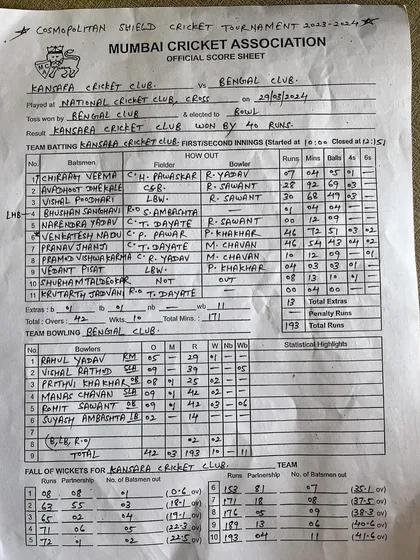 ★ COSMOPOLITAN SHIELD CRICKET TOURNAMENT 2023-2024 ★
MUMBAI CRICKET ASSOCIATION
OFFICIAL SCORE SHEET
KANSARA CRICKET CLUB. Vs BENGAL CLUB.
Played at NATIONAL CRICKET CLUB, CROSS on 29/03/2024
Toss won by BENGAL CLUB & elected to BOWL
Result KANSARA CRICKET CLUB WON BY 40 RUNS.
TEAM BATTING KANSARA CRICKET CLUB. FIRST/SECOND INNINGS (Started at 10:00 Closed at 12:51)
No. Batsmen HOW OUT Fielder Bowler Runs Mins Balls 4s 6s
1 CHIRAAG VEERMA C. H. PAWASKAR R. YADAV 07 04 05 01 —
2 AVADHOOT DHEKALE C&B. R. SAWANT 28 92 69 03 —
3 VISHAL POODHARI LBW. R. SAWANT 30 68 49 03 —
LHB 4 BHUSHAN SANGHAVI R.O S. AMBASHTA 01 04 04 — —
5 NARENDRA YADAV C. T. DAYATE R. SAWANT 00 12 09 — —
6 VENKATESH NADU C. P. PAWAR P. KHAKHAR 46 72 51 03 02
7 PRANAV JHANJI C. T. DAYATE M. CHAVAN 46 54 43 04 02
8 PRAMOD VISHWAKARMA C. R. YADAV M. CHAVAN 10 12 09 — 01
9 VEDANT PISAT LBW. P. KHAKHAR 04 03 03 01 —
10 SHUBHAM TALDEOKAR NOT OUT 08 13 10 01 —
11 KRUTARTH JADVANI R.O T. DAYATE 00 04 00 — —
Extras : b 01 lb 01 nb — wb 11 13 Total Extras
— Penalty Runs
Total : Overs : 42 Wkts. 10 Total Mins. : 171 193 Total Runs
TEAM BOWLING BENGAL CLUB.
No. Bowlers O M R W Nb Wb Statistical Highlights
1 RAHUL YADAV RM 05 — 29 01 — —
2 VISHAL RATHOD SLA 09 — 39 — — 05
3 PRITHVI KHAKHAR OB 08 01 25 02 — —
4 MANAS CHAVAN SLA 09 01 42 02 — —
5 ROHIT SAWANT OB 09 01 42 03 — 06
6 SUYASH AMBASHTA LB 02 — 14 — — —
7
8 (B, LB, R.O) 02 02
9 TOTAL 42 03 193 10 — 11
FALL OF WICKETS FOR KANSARA CRICKET CLUB. TEAM
Runs Partnership No. of Batsmen out Runs Partnership No. of Batsmen out
1 08 08 01 (0.6 ov) 6 153 81 07 (35.1 ov)
2 63 55 03 (18.1 ov) 7 171 18 08 (37.5 ov)
3 65 02 04 (19.1 ov) 8 176 05 09 (38.3 ov)
4 71 06 05 (22.3 ov) 9 189 13 06 (40.6 ov)
5 72 01 02 (22.5 ov) 10 193 04 11 (41.6 ov)